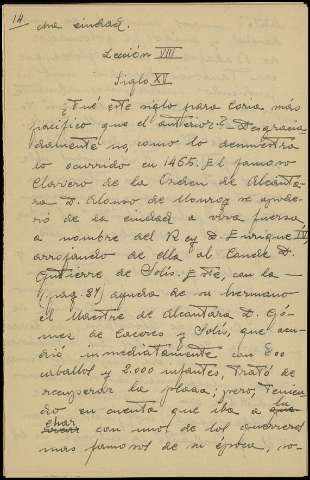 14
cha ciudad.
Lección VIII
Siglo XV
¿Fué este siglo para Coria más
pacífico que el anterior? - Desgracia
damente no, como lo demuestra
lo ocurrido en 1465. El famoso
Clavero de la Orden de Alcánta-
ra D. Alonso de Monroy se apode-
ró de la ciudad a viva fuerza
a nombre del Rey D. Enrique IV
arrojando de ella al Conde D.
Gutierre de Solís. Este, con la
(pag. 87) ayuda de su hermano
el Maestre de Alcántara D. Gó-
mez de Cáceres y Solís, que acu-
dió inmediatamente con 800
caballos y 2.000 infantes, trató de
recuperar la plaza; pero, tenien
do en cuenta que iba a lu
char con uno de los guerreros
mas famosos de su época, so-